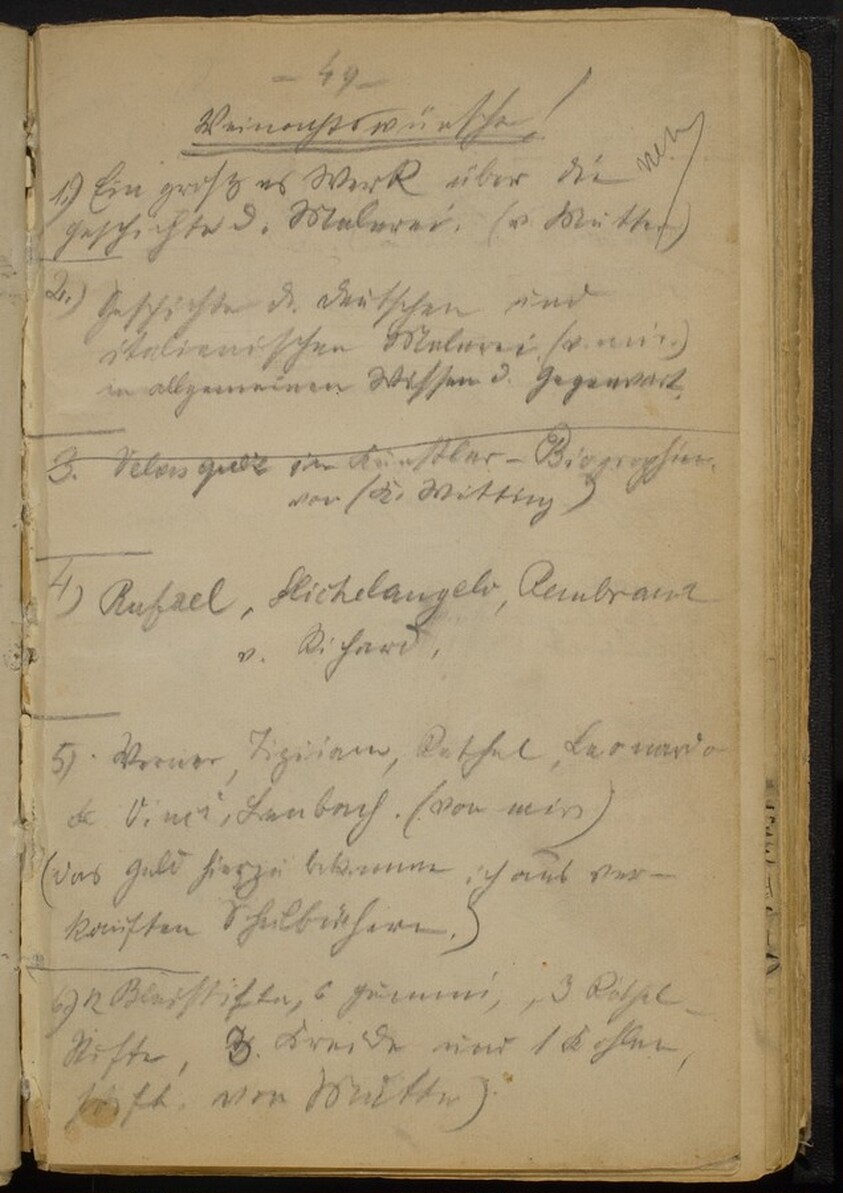 - 49 -
Weinachtswünsche!
1.) Ein großes Werk über die
Geschichte d. Malerei. (v. Mutter)
2.) Geschichte d. deutschen und
italienischen Malerei. (v. mir.)
im allgemeinen Wissen d. Gegenwart.
3. Velasquez in Künstler-Biographien.
von (K. Witting)
4) Rafael, Michelangelo, Rembrant
v. Richard,
5) Werner, Tiziian, Rethel, Leonardo
de Vinci, Lenbach. (von mir)
(das Geld hierzu bekomme ich aus ver-
kauften Schulbüchern.)
6) 12 Bleistifte, 6 Gummi, , 3 Röthel-
Stifte, 3. Kreide und 1 Kohlen,
stift. von Mutter)